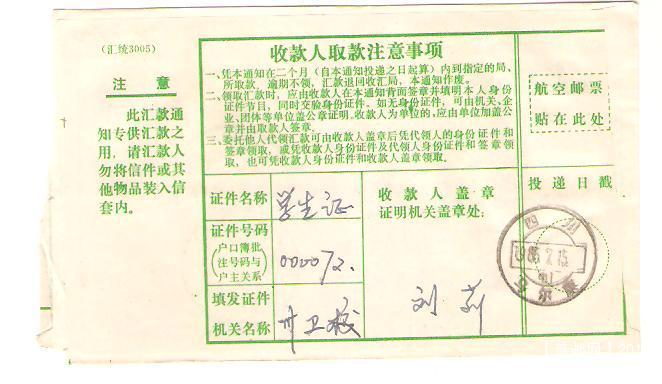 （汇统3005）
注 意
此汇款通
知专供汇款之
用，请汇款人
勿将信件或其
他物品装入信
套内。
收款人取款注意事项
一、凭本通知在二个月（自本通知投递之日起算）内到指定的局、
所取款。逾期不领，汇款退回收汇局，本通知作废。
二、领取汇款时，应由收款人在本通知背面签章并填明本人身份
证件节目，同时交验身份证件。如无身份证件，可由机关、企
业、团体等单位盖公章证明。收款人为单位的，应由单位加盖公
章并由取款人签章。
三、委托他人代领汇款可由收款人盖章后凭代领人的身份证件和
签章领取，或凭收款人身份证件及代领人身份证件和签章领
取，也可凭收款人身份证件和收款人盖章领取。
航空邮票
贴在此处
证件名称
学生证
收款人盖章
证明机关盖章处：
投递日戳
证件号码
户口簿批
注号码与
户主关系
000072.
填发证件
机关名称
卫校
刘莉
四川